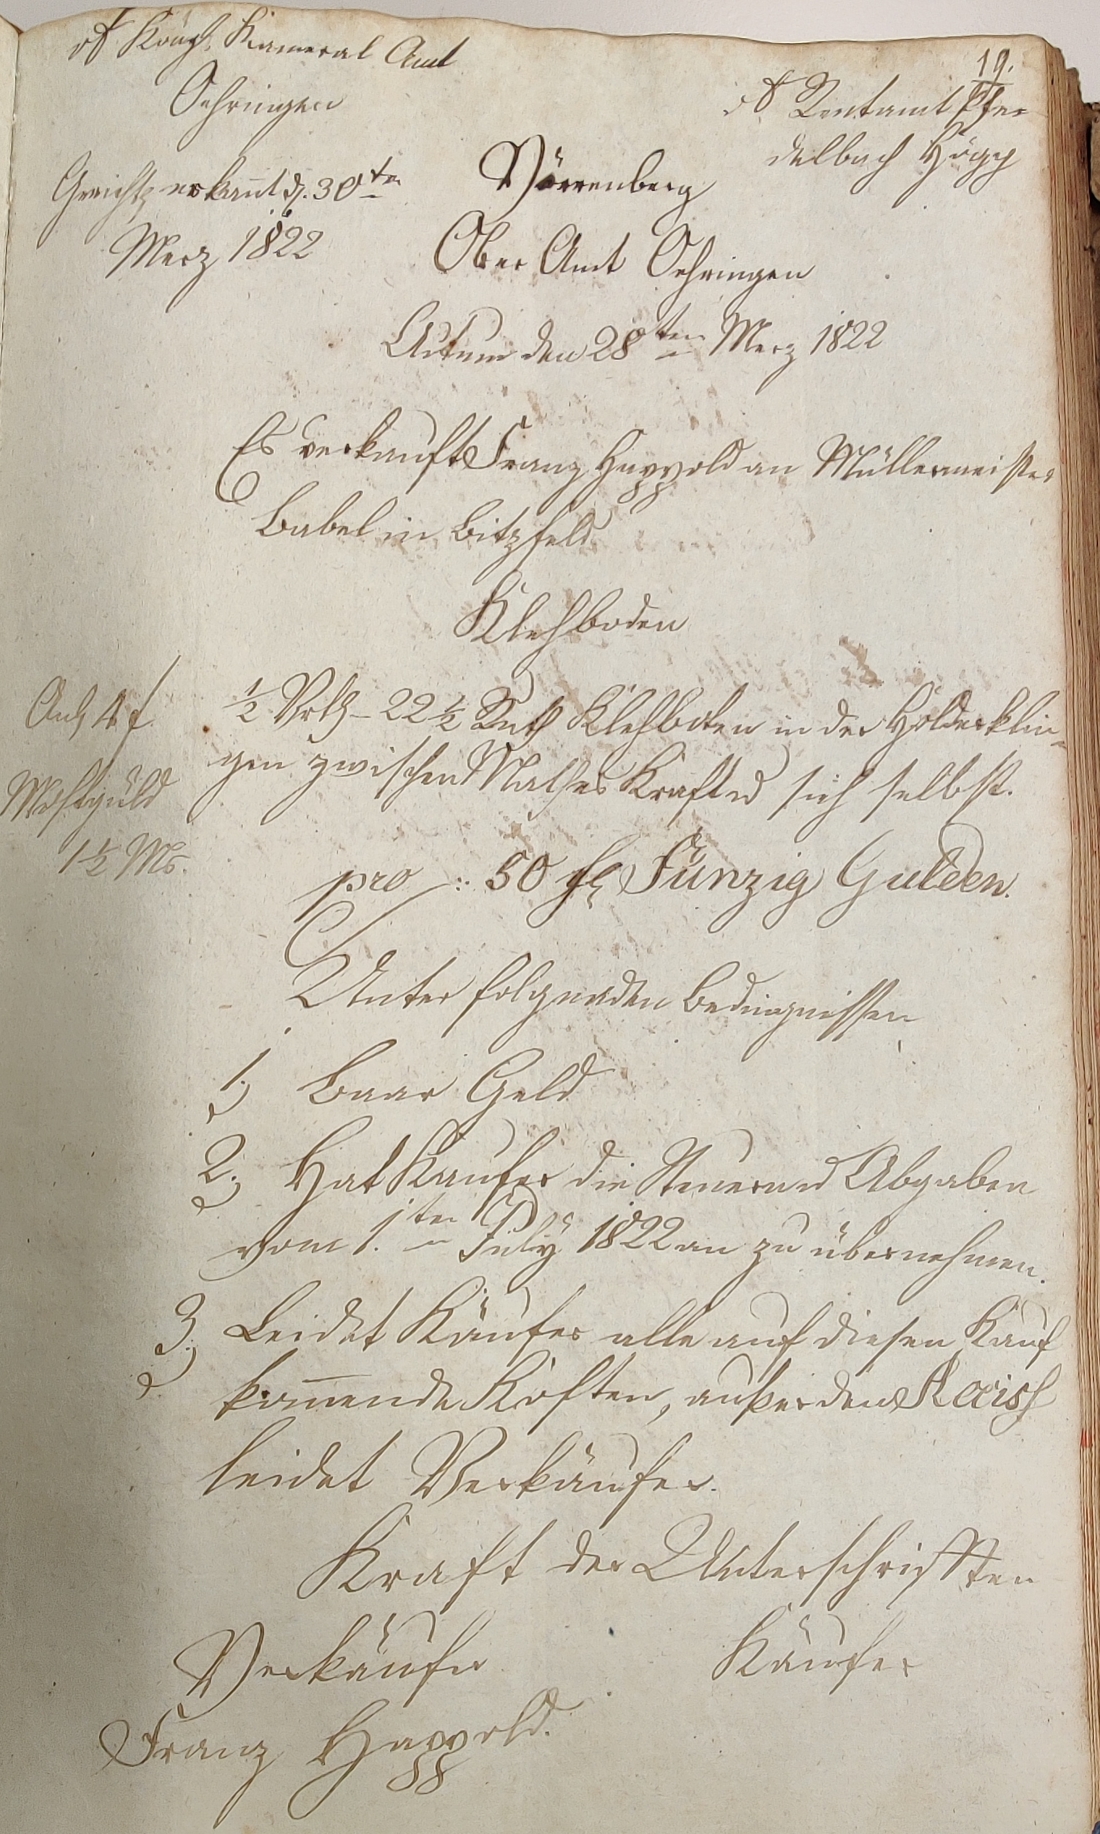 19.
vt Königl. Kameral Amt
Oehringen
vt Rentamt Pfe-
delbach Högg
Gerichtz erkannt d. 30ten
Merz 1822
Verrenberg
Ober Amt Oehringen
Actum den 28ten Merz 1822
Es verkauft Franz Happold an Müllermeister
Babel in Bitzfeld
Klehboden
1/2 Vrtl. 22 1/2 Ruth Klehboden in der Holderklin-
gen zwischen Mathes Kraft u sich selbst.
4 f
1 1/2 Ms.
pro -: 50 fl Fünzig Gulden.
Unter folgenden Bedingnissen
1. Baar Geld
2. Hat Kaufer die Steuer und Abgaben
vom 1.ten July 1822 an zu übernehmen.
3. Leidet Käufer alle auf diesen Kauf
komende Kosten, außer den Accis
leidet Verkäufer.
Kraft der Unterschriften
Verkäufer
Käufer
Franz Happold.